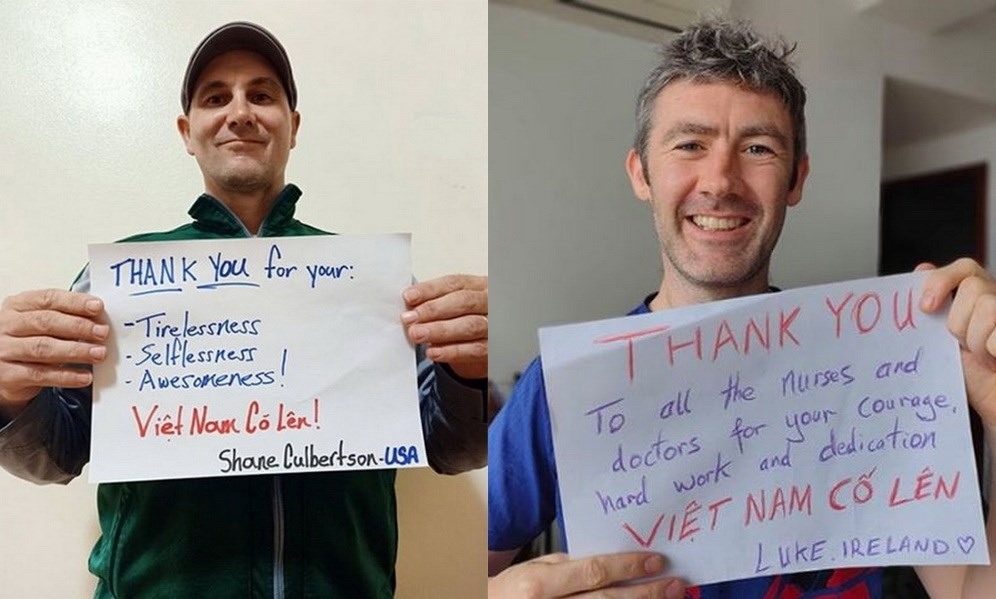 THANK YOU for your:
- Tirelessness
- Selflessness
- Awesomeness!
Việt Nam Cố Lên!
Shane Culbertson-USA
THANK YOU
To all the nurses and
doctors for your courage,
hard work and dedication
VIỆT NAM CỐ LÊN
LUKE. IRELAND ♡